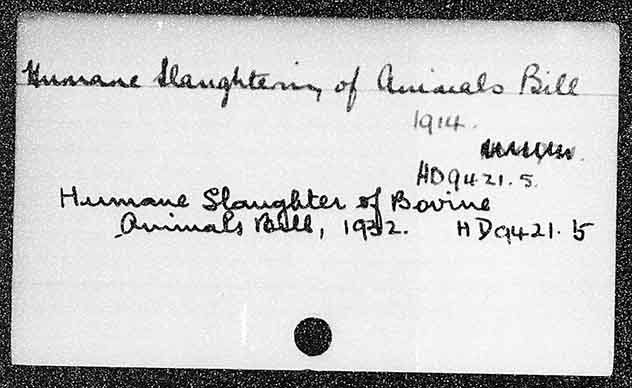 Humane Slaughtering of Animals Bill
1914.
HD9421.5.
Humane Slaughter of Bovine
Animals Bill, 1932. HD9421.5